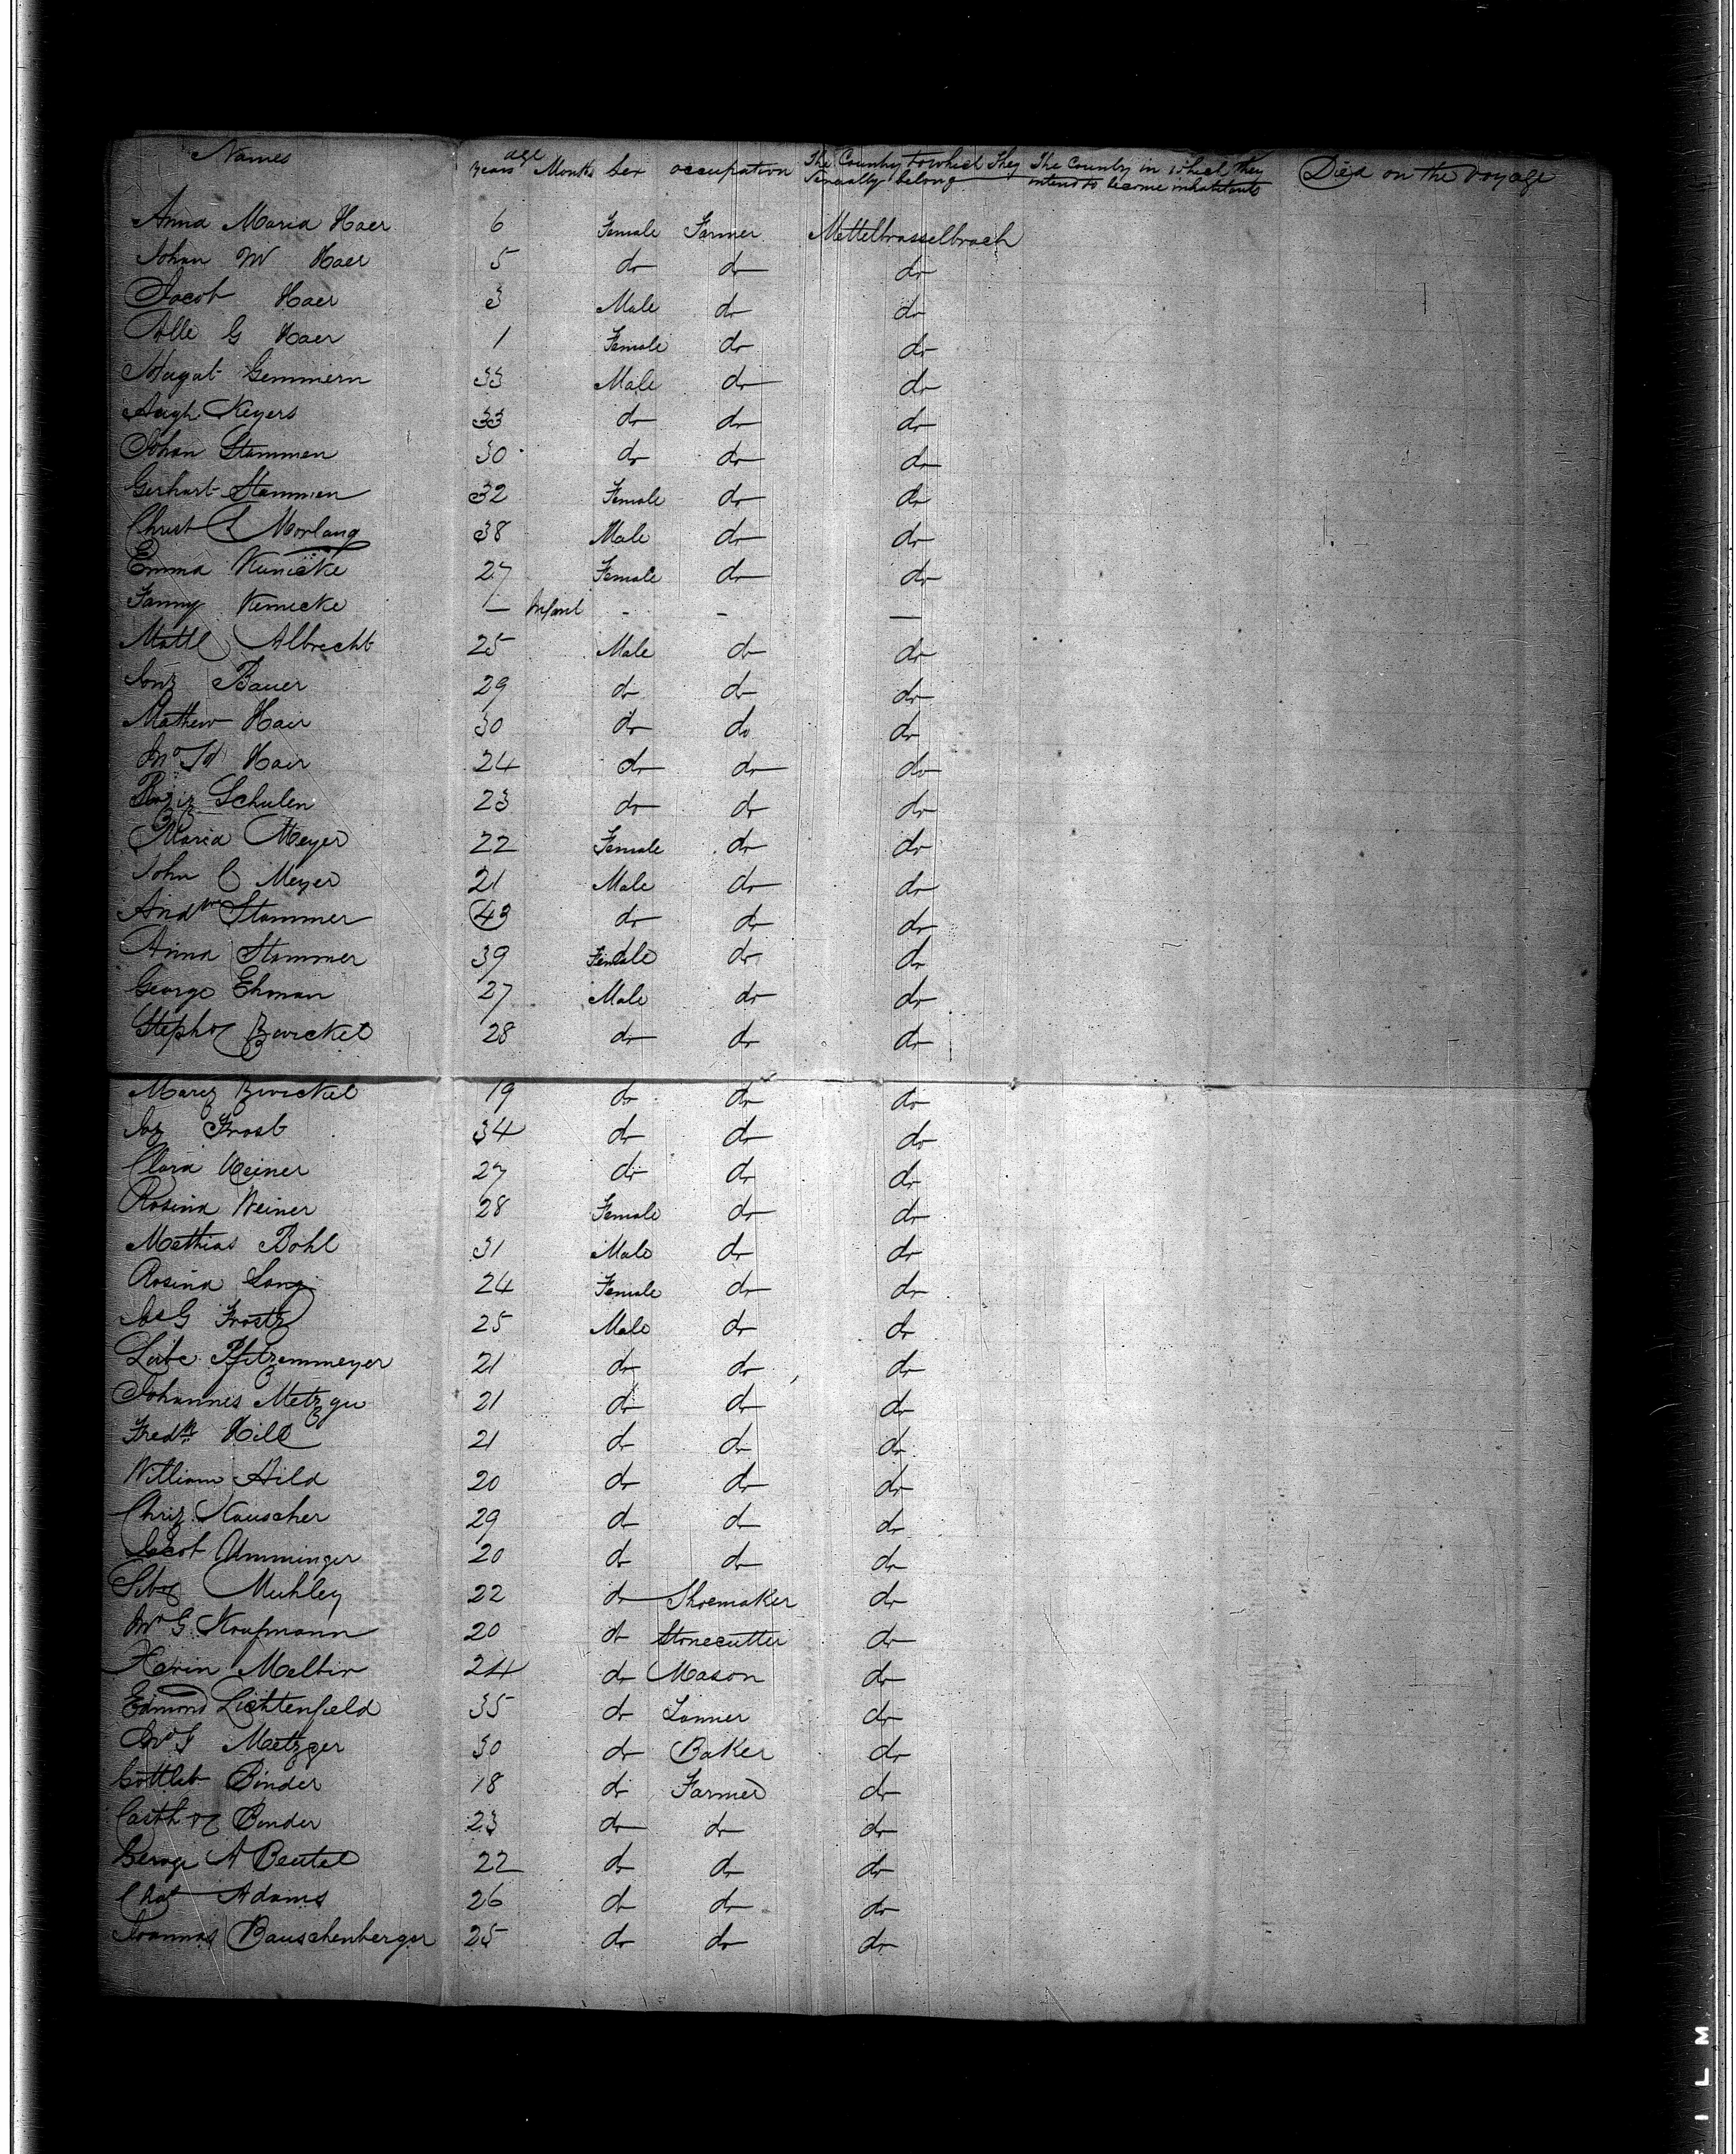 Names age years Months Sex occupation The Country to which They Severally belong The Country in which they intend to become inhabitants Died on the Voyage
Anna Maria Haer 6 Female Farmer Mettelbrasselbrach
Johan W Haer 5 do do do
Jacob Haer 3 Male do do
Alle G Haer 1 Female do do
Gemmern 33 Male do do
Keyers 33 do do do
Johan Stammen 30 do do do
Gerhart Stammen 32 Female do do
Christ Morlang 38 Male do do
Emma Kunicke 27 Female do do
Fanny Kenicke — Infant - - —
Albrecht 25 Male do do
Bauer 29 do do do
Mathew Hair 30 do do do
Hair 24 do do do
Schulen 23 do do do
Maria Meyer 22 Female do do
John C Meyer 21 Male do do
Andw Stammer 43 do do do
Anna Stammer 39 Female do do
George Ehman 27 Male do do
Steph Zwickel 28 do do do
Zwickel 19 do do do
Frost 34 do do do
Clara Heiner 27 do do do
Rosina Weiner 28 Female do do
Mathias Bohl 31 Male do do
Rosina Lang 24 Female do do
G 25 Male do do
Pfitzemmeyer 21 do do do
Johannes Metzger 21 do do do
Fredk Hill 21 do do do
William Hild 20 do do do
Kauscher 29 do do do
Jacob Umminger 20 do do do
Muhley 22 do Shoemaker do
Jno G Kaufmann 20 do Stonecutter do
Melbir 24 do Mason do
Edmond Lichtenfield 35 do Tanner do
Jno F Metzger 30 do Baker do
Gottleb Binder 18 do Farmer do
Binder 23 do do do
George A Beutel 22 do do do
Chas Adams 26 do do do
Joannas Bauschenberger 25 do do do
I L M